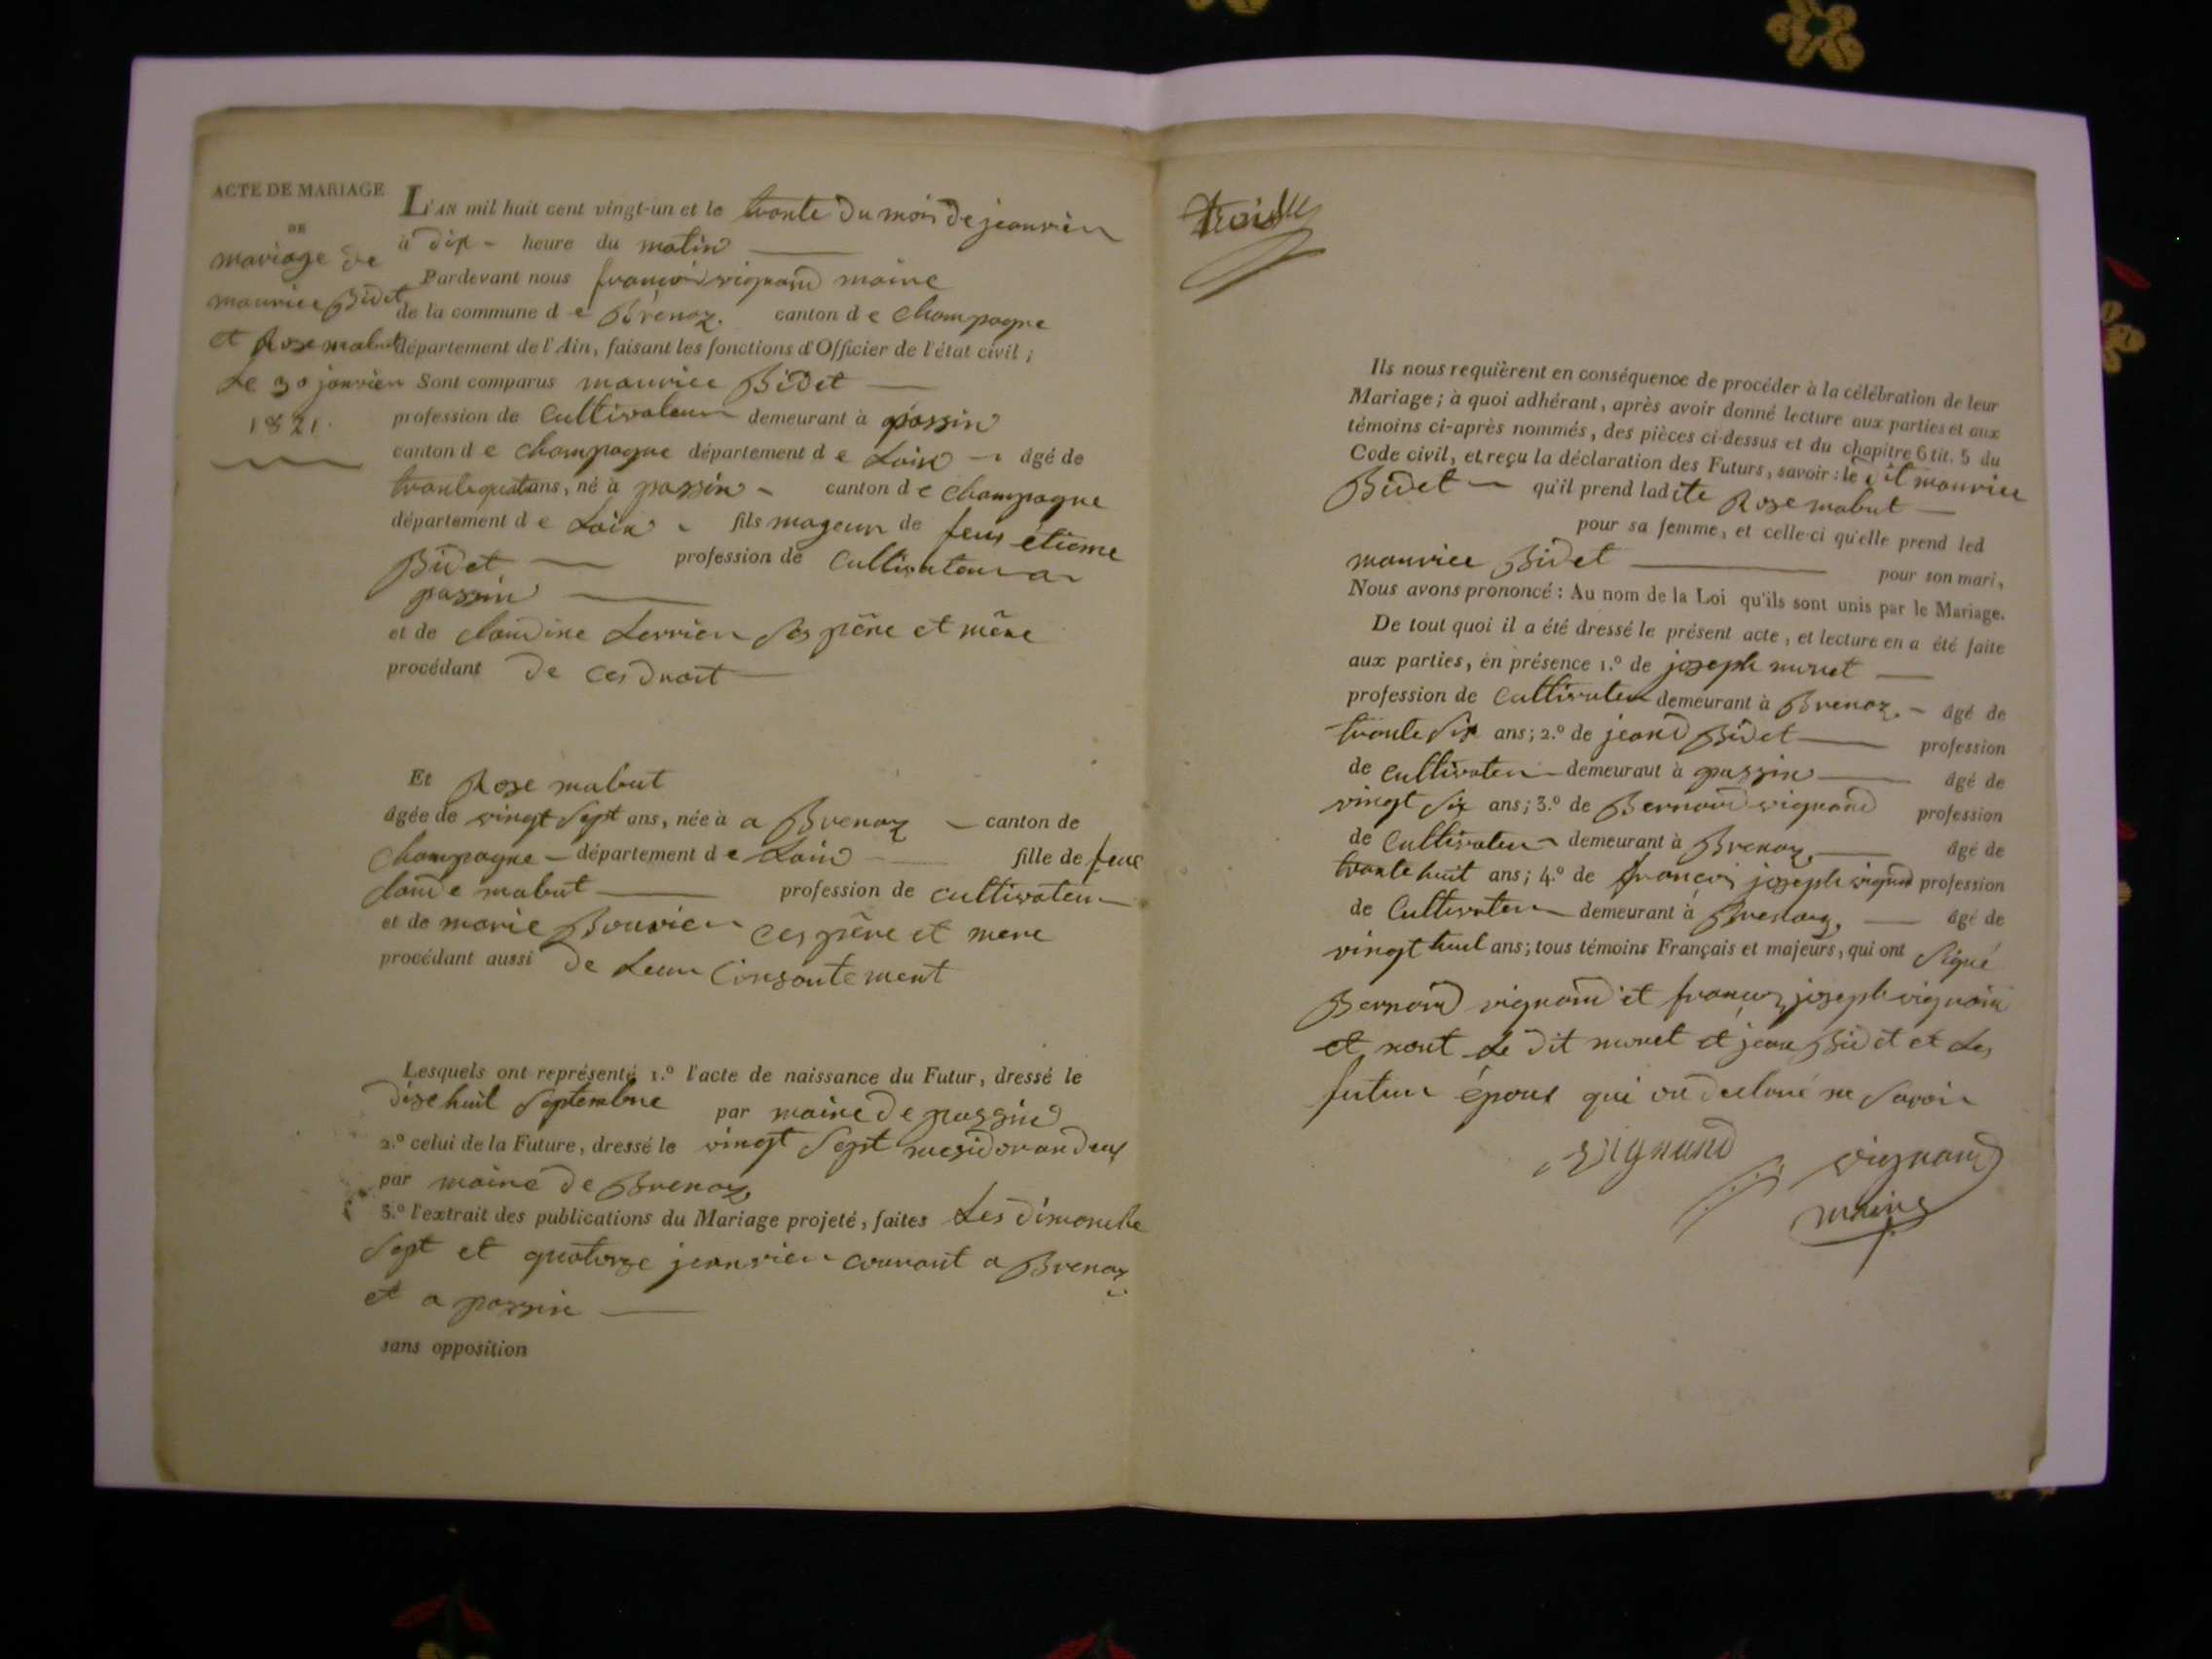 ACTE DE MARIAGE
DE
mariage de
maurice Bidet
et Rose mabut
Le 30 janvier
1821.
L'AN mil huit cent vingt-un et le trante du mois de jeanvier
à dix heure du matin
Pardevant nous françois vignand maire
de la commune de Brénaz. canton de Champagne
département de l'Ain, faisant les fonctions d'Officier de l'état civil;
Sont comparus maurice Bidet
profession de Cultivateur demeurant à passin
canton de Champagne département de Lain âgé de
trante quat ans, né à passin canton de Champagne
département de Lain fils mageur de feux étiene
Bidet profession de Cultivateur a
passin
et de claudine Lerrier Ses père et mère
procédant de ces droit
Et Rose mabut
âgée de vingt Sept ans, née à a Brenaz canton de
Champagne département de Lain fille de feux
claude mabut profession de cultivateur
et de marie Bouvier ces père et mere
procédant aussi de Leur Consantement
Lesquels ont représenté 1.º l'acte de naissance du Futur, dressé le
dize huit Septembre par maire de passin
2.º celui de la Future, dressé le vingt Sept mesidor an deux
par maire de Brenaz
3.º l'extrait des publications du Mariage projeté, faites Les dimanche
Sept et quatorze jeanvier courant a Brenaz
et a passin
sans opposition
trois
Ils nous requièrent en conséquence de procéder à la célébration de leur
Mariage; à quoi adhérant, après avoir donné lecture aux parties et aux
témoins ci-après nommés, des pièces ci-dessus et du chapitre 6 tit. 5 du
Code civil, et reçu la déclaration des Futurs, savoir: le dit maurice
Bidet qu'il prend ladite Rose mabut
pour sa femme, et celle-ci qu'elle prend led
maurice Bidet pour son mari,
Nous avons prononcé: Au nom de la Loi qu'ils sont unis par le Mariage.
De tout quoi il a été dressé le présent acte, et lecture en a été faite
aux parties, en présence 1.º de joseph
profession de Cultivateur demeurant à Brenaz. âgé de
trante Six ans; 2.º de jean Bidet profession
de cultivateur demeurant à passin âgé de
vingt Six ans; 3.º de Bernard vignand profession
de Cultivateur demeurant à Brenaz, âgé de
trante huit ans; 4.º de françois joseph vignand profession
de Cultivateur demeurant à Brenaz, âgé de
vingt huit ans; tous témoins Français et majeurs, qui ont Signé
Bernard vignand et françois joseph vignand
et nont Le dit et jean Bidet et Les
futur époux qui on declaré ne Savoir
vignand vignand
maire